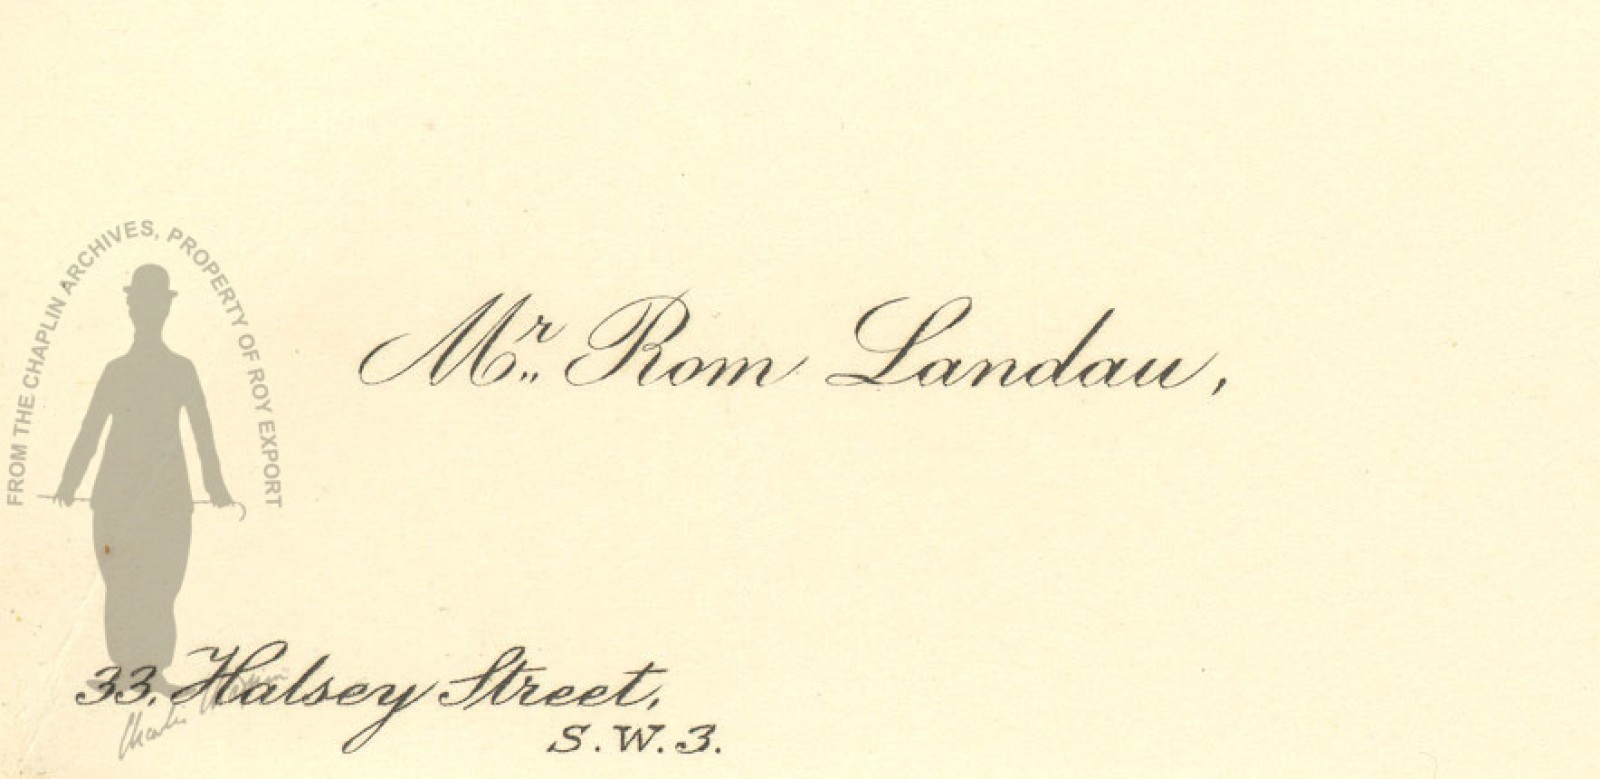 FROM THE CHAPLIN ARCHIVES, PROPERTY OF ROY EXPORT
Mr. Rom Landau,
33, Halsey Street,
S.W.3.
Charlie Chaplin